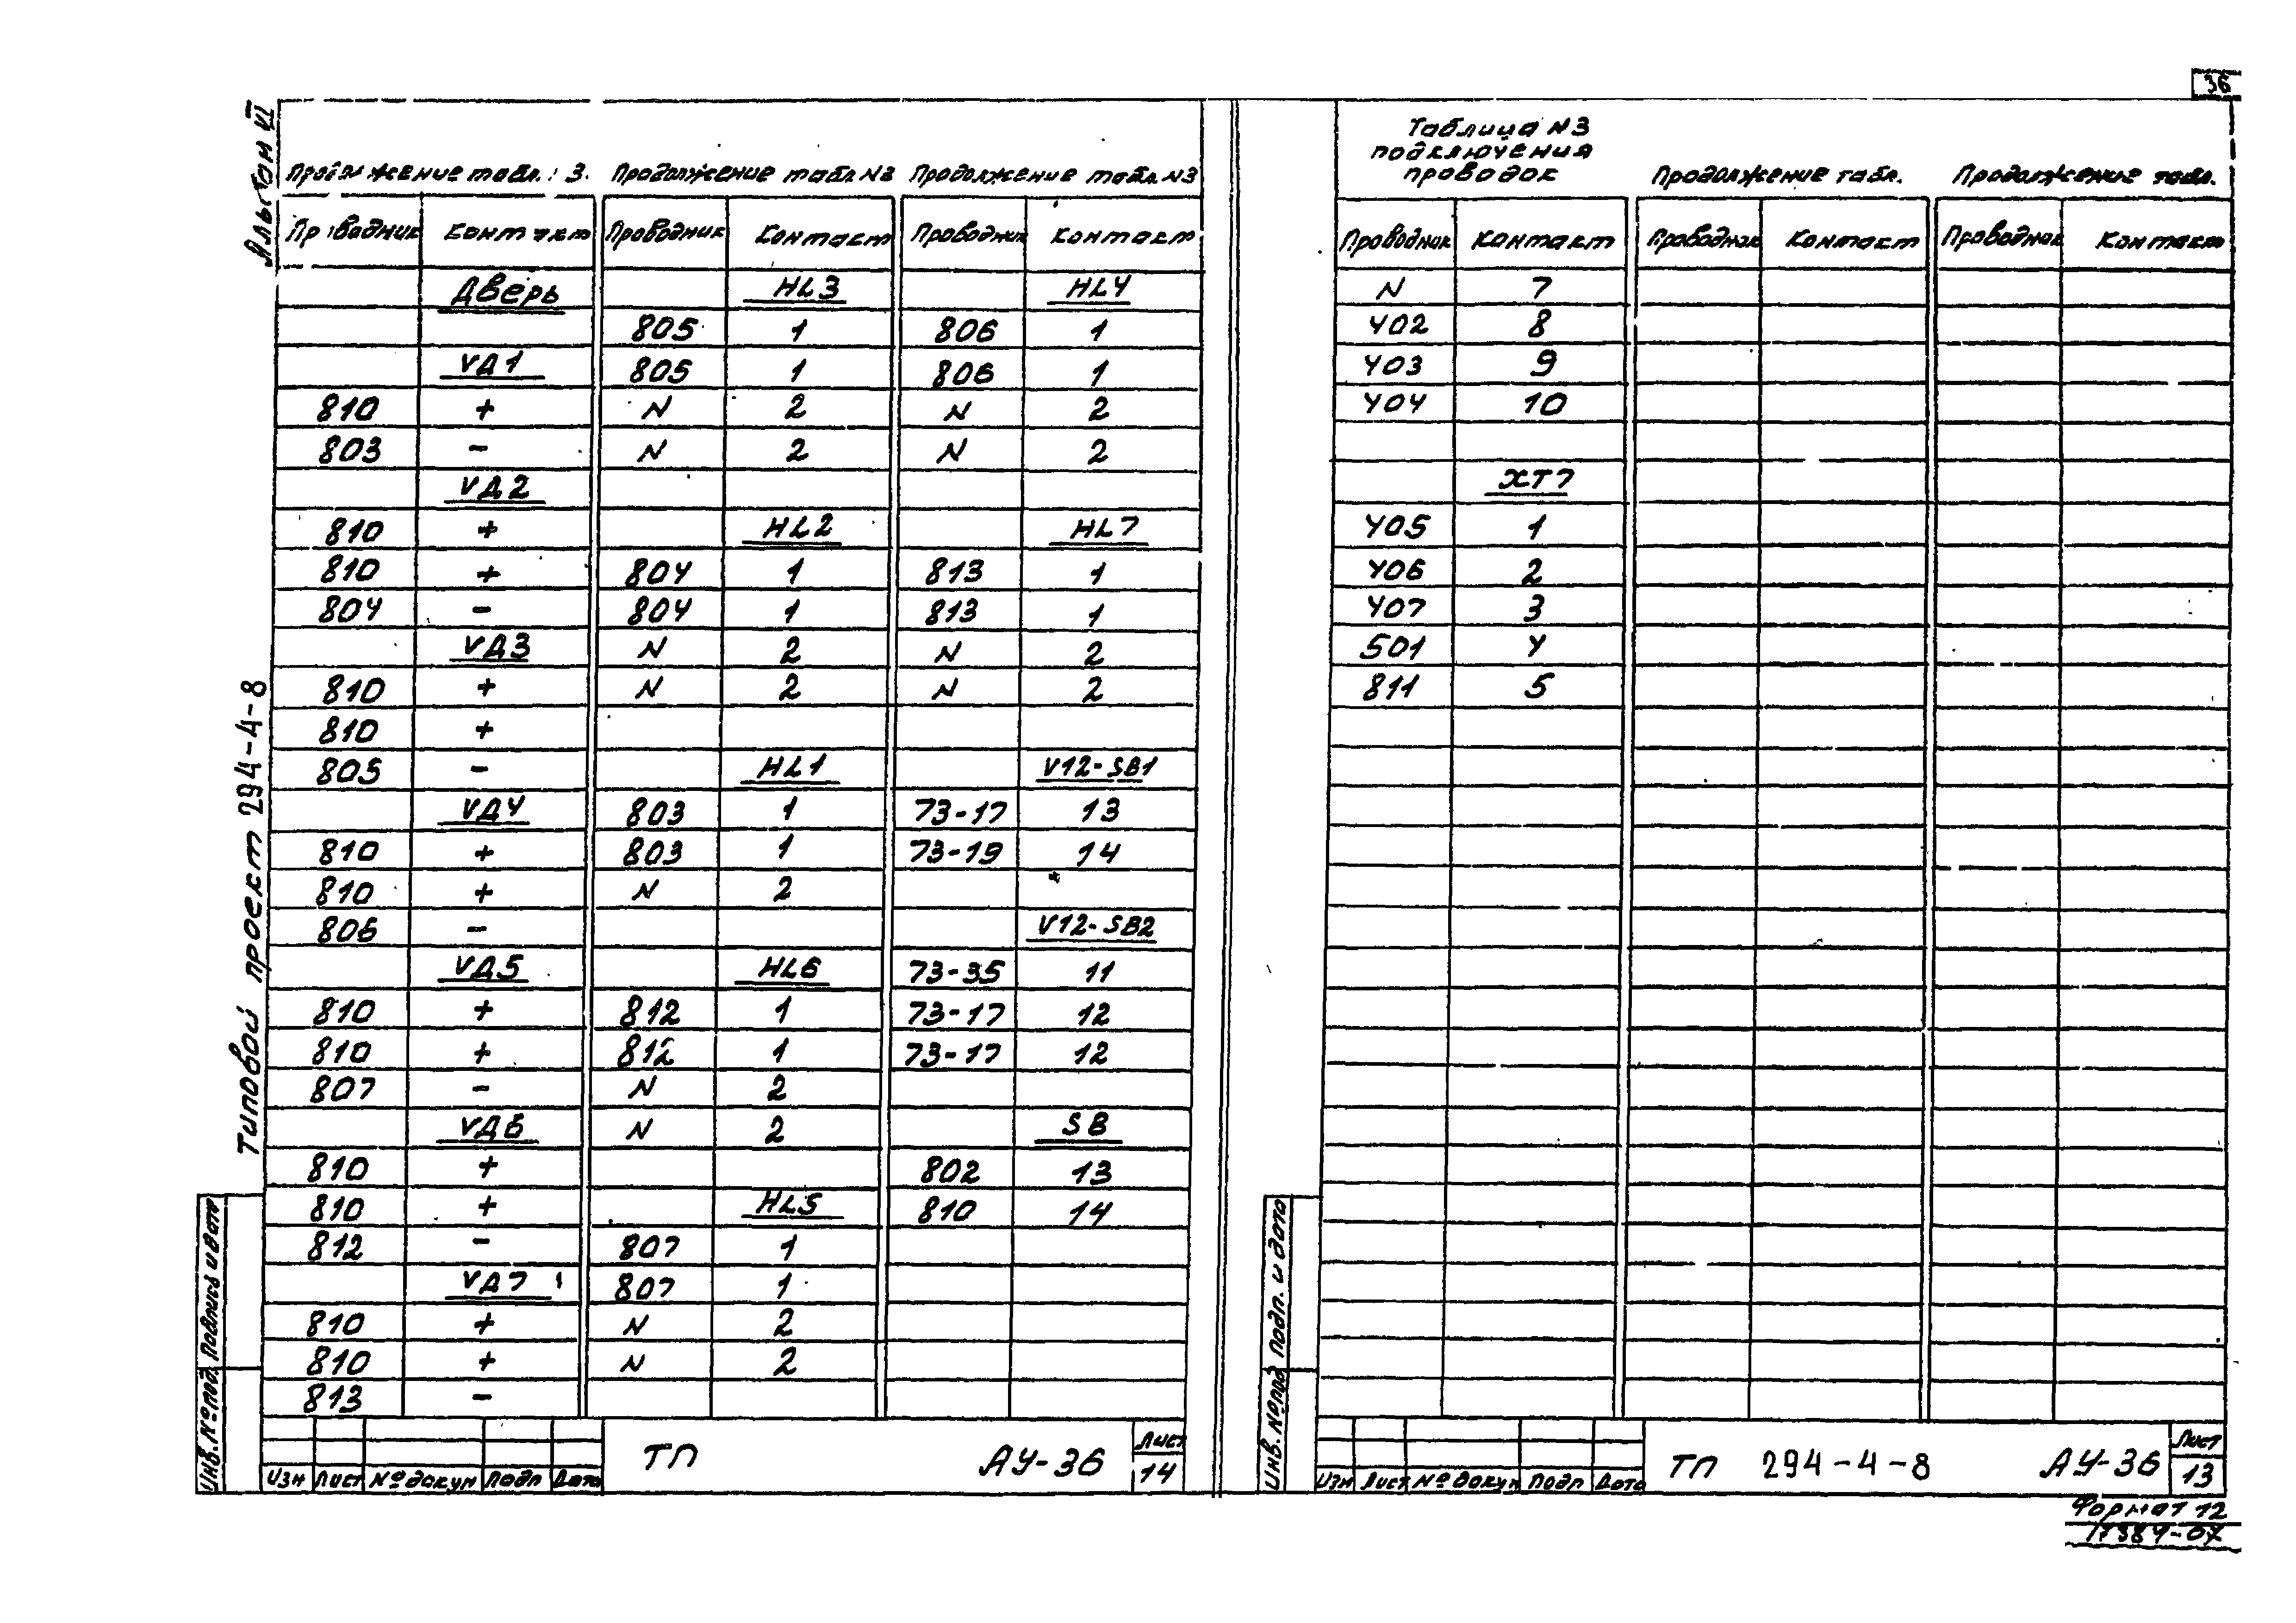 36
Альбом VI
Типовой проект 294-4-8
Продолжение табл. 3.
Проводник Контакт
Дверь
VД1
810 +
803 -
VД2
810 +
810 +
804 -
VД3
810 +
810 +
805 -
VД4
810 +
810 +
806 -
VД5
810 +
810 +
807 -
VД6
810 +
810 +
812 -
VД7
810 +
810 +
813 -
Продолжение табл N3
Проводник Контакт
HL3
805 1
805 1
N 2
N 2
HL2
804 1
804 1
N 2
N 2
HL1
803 1
803 1
N 2
HL6
812 1
812 1
N 2
N 2
HL5
807 1
807 1
N 2
N 2
Продолжение табл. N3
Проводник Контакт
HL4
806 1
806 1
N 2
N 2
HL7
813 1
813 1
N 2
N 2
V12-SB1
73-17 13
73-19 14
V12-SB2
73-35 11
73-17 12
73-17 12
SB
802 13
810 14
Инв. № под. Подпись и дата
Изм Лист № докум Подп Дата
ТП АУ-36
Лист
14
Таблица N3
подключения
проводок
Проводник Контакт
N 7
402 8
403 9
404 10
XT7
405 1
406 2
407 3
501 4
811 5
Продолжение табл.
Проводник Контакт
Продолжение табл.
Проводник Контакт
Инв. № под Подп. и дата
Изм Лист № докум Подп Дата
ТП 294-4-8 АУ-36
Лист
13
Формат 12
17384-07